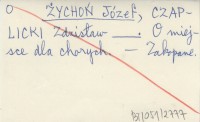 O ŻYCHOŃ Józef, CZAP-
LICKI Zdzisław —. O miej-
sce dla chorych. — Zakopane.